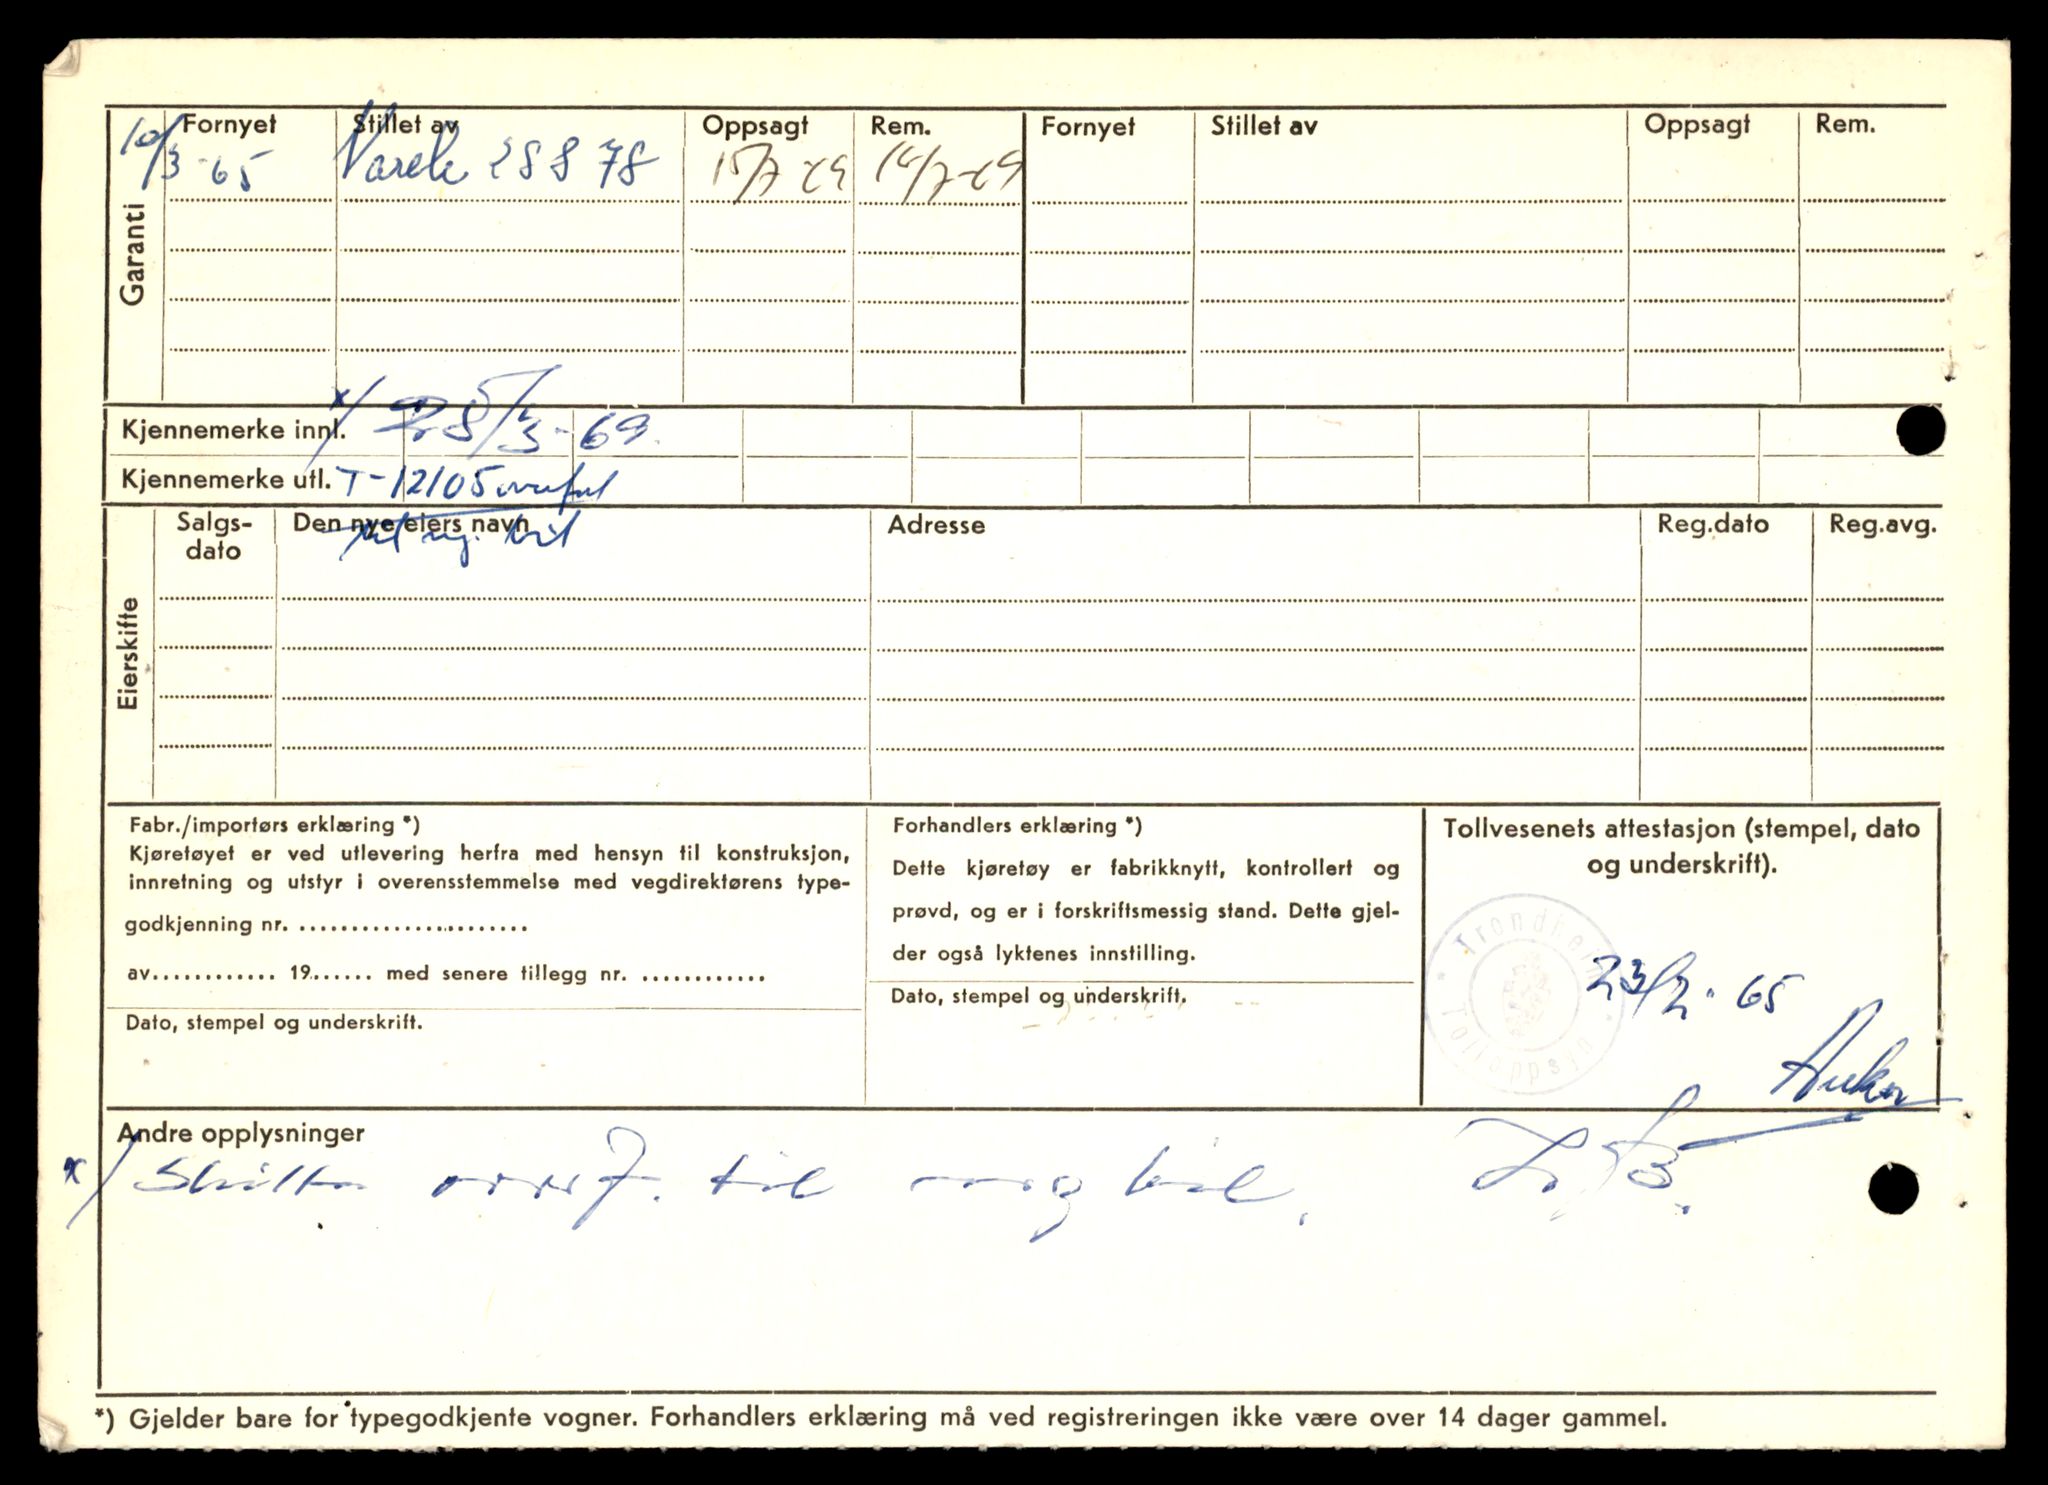 Garanti
Fornyet Stillet av Oppsagt Rem. Fornyet Stillet av Oppsagt Rem.
10/3-65 28878 15/7
Kjennemerke innl. x/ 5/3-69.
Kjennemerke utl. T-12105 overført
til ny. bil
Eierskifte
Salgs-
dato
Den nye eiers navn Adresse Reg.dato Reg.avg.
Fabr./importørs erklæring *)
Kjøretøyet er ved utlevering herfra med hensyn til konstruksjon,
innretning og utstyr i overensstemmelse med vegdirektørens type-
godkjenning nr. ......................
av............ 19...... med senere tillegg nr. ............
Dato, stempel og underskrift.
Forhandlers erklæring *)
Dette kjøretøy er fabrikknytt, kontrollert og
prøvd, og er i forskriftsmessig stand. Dette gjel-
der også lyktenes innstilling.
Dato, stempel og underskrift.
Tollvesenets attestasjon (stempel, dato
og underskrift).
Trondheim Tolloppsyn
23/2. 65
Andre opplysninger
x/ Skilter overf. til bil.
*) Gjelder bare for typegodkjente vogner. Forhandlers erklæring må ved registreringen ikke være over 14 dager gammel.